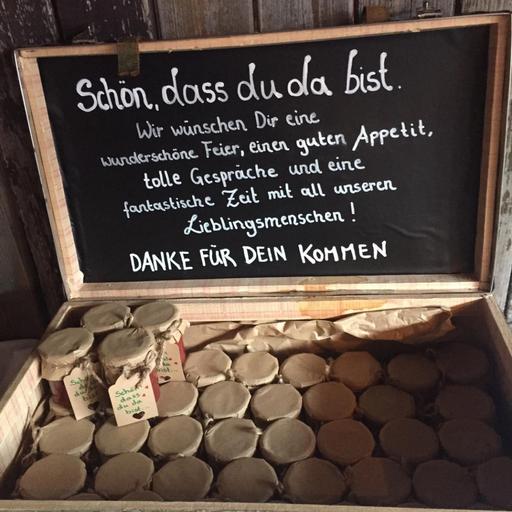 Schön, dass du da bist.
Wir wünschen Dir eine
wunderschöne Feier, einen guten Appetit,
tolle Gespräche und eine
fantastische Zeit mit all unseren
Lieblingsmenschen!
DANKE FÜR DEIN KOMMEN
Schön
dass
du da
bist.